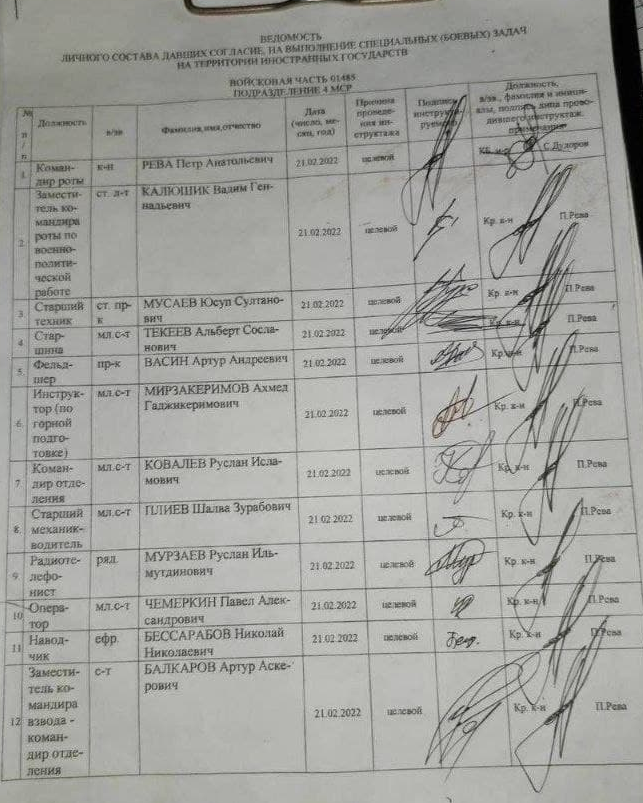 ВЕДОМОСТЬ
ЛИЧНОГО СОСТАВА ДАВШИХ СОГЛАСИЕ, НА ВЫПОЛНЕНИЕ СПЕЦИАЛЬНЫХ (БОЕВЫХ) ЗАДАЧ
НА ТЕРРИТОРИИ ИНОСТРАННЫХ ГОСУДАРСТВ
ВОЙСКОВАЯ ЧАСТЬ 01485
ПОДРАЗДЕЛЕНИЕ 4 МСР
№ п/п Должность в/зв Фамилия,имя,отчество Дата (число, месяц, год) Причина проведения инструктажа Подпись инструктируемого Должность, в/зв., фамилия и инициалы, подпись лица проводившего инструктаж, примечания
1. Командир роты к-н РЕВА Петр Анатольевич 21.02.2022 целевой КБ С.Дудоров
2. Заместитель командира роты по военно-политической работе ст. л-т КАЛЮШИК Вадим Геннадьевич 21.02.2022 целевой Кр. к-н П.Рева
3. Старший техник ст. пр-к МУСАЕВ Юсуп Султанович 21.02.2022 целевой Кр. к-н П.Рева
4. Старшина мл.с-т ТЕКЕЕВ Альберт Сосланович 21.02.2022 целевой Кр. к-н П.Рева
5. Фельдшер пр-к ВАСИН Артур Андреевич 21.02.2022 целевой Кр. к-н П.Рева
6. Инструктор (по горной подготовке) мл.с-т МИРЗАКЕРИМОВ Ахмед Гаджикеримович 21.02.2022 целевой Кр. к-н П.Рева
7. Командир отделения мл.с-т КОВАЛЕВ Руслан Исламович 21.02.2022 целевой Кр. к-н П.Рева
8. Старший механик-водитель мл.с-т ПЛИЕВ Шалва Зурабович 21.02.2022 целевой Кр. к-н П.Рева
9. Радиотелефонист ряд. МУРЗАЕВ Руслан Ильмутдинович 21.02.2022 целевой Кр. к-н П.Рева
10 Оператор мл.с-т ЧЕМЕРКИН Павел Александрович 21.02.2022 целевой Кр. к-н П.Рева
11 Наводчик ефр. БЕССАРАБОВ Николай Николаевич 21.02.2022 целевой Кр. к-н П.Рева
12 Заместитель командира взвода - командир отделения с-т БАЛКАРОВ Артур Аскерович 21.02.2022 целевой Кр. к-н П.Рева